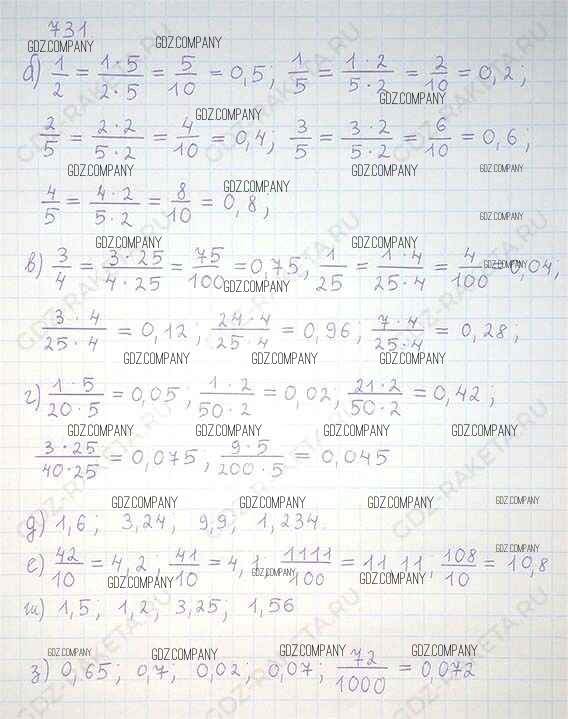 731
GDZ.COMPANY GDZ.COMPANY
б) 1/2 = 1·5/2·5 = 5/10 = 0,5; 1/5 = 1·2/5·2 = 2/10 = 0,2;
GDZ.COMPANY
GDZ.COMPANY
2/5 = 2·2/5·2 = 4/10 = 0,4; 3/5 = 3·2/5·2 = 6/10 = 0,6;
GDZ.COMPANY GDZ.COMPANY GDZ.COMPANY
4/5 = 4·2/5·2 = 8/10 = 0,8;
GDZ.COMPANY
GDZ.COMPANY
в) 3/4 = 3·25/4·25 = 75/100 = 0,75, 1/25 = 1·4/25·4 = 4/100 = 0,04;
GDZ.COMPANY
GDZ.COMPANY
3·4/25·4 = 0,12; 24·4/25·4 = 0,96; 7·4/25·4 = 0,28;
GDZ.COMPANY GDZ.COMPANY GDZ.COMPANY
г) 1·5/20·5 = 0,05; 1·2/50·2 = 0,02, 21·2/50·2 = 0,42;
GDZ.COMPANY GDZ.COMPANY GDZ.COMPANY GDZ.COMPANY
3·25/40·25 = 0,075; 9·5/200·5 = 0,045
GDZ.COMPANY GDZ.COMPANY GDZ.COMPANY GDZ.COMPANY
д) 1,6; 3,24, 9,9, 1,234.
GDZ.COMPANY
е) 42/10 = 4,2; 41/10 = 4,1, 1111/100 = 11,11, 108/10 = 10,8
GDZ.COMPANY GDZ.COMPANY GDZ.COMPANY
ж) 1,5; 1,2; 3,25; 1,56
GDZ.COMPANY GDZ.COMPANY GDZ.COMPANY GDZ.COMPANY
з) 0,65; 0,7; 0,02; 0,07; 72/1000 = 0,072
GDZ-RAKETA.RU